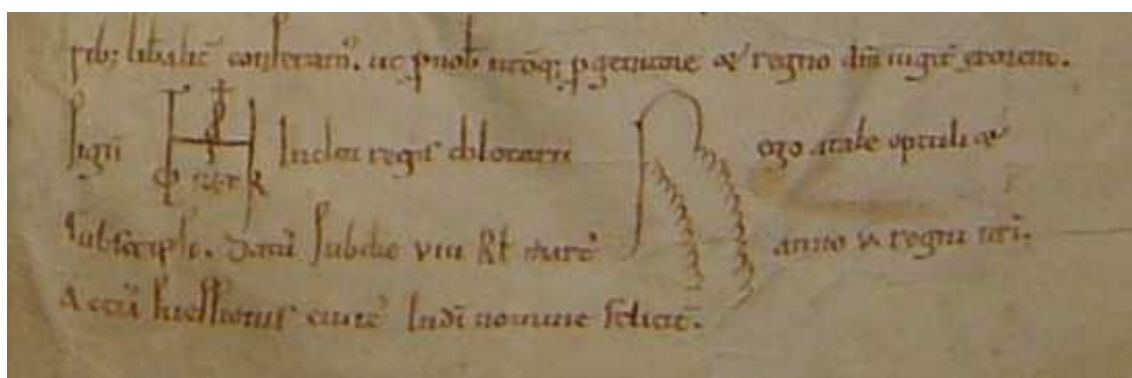 rib; libalit conferam. ut pnob nroq; pgenitore & regno dni iugit exorent.
Signu Incliti regis chlotarii ozo atale optuli &
subscripsi. Datu sub die viii kl marc anno v regni nri.
Actu suessionis civit In di nomine felicit.